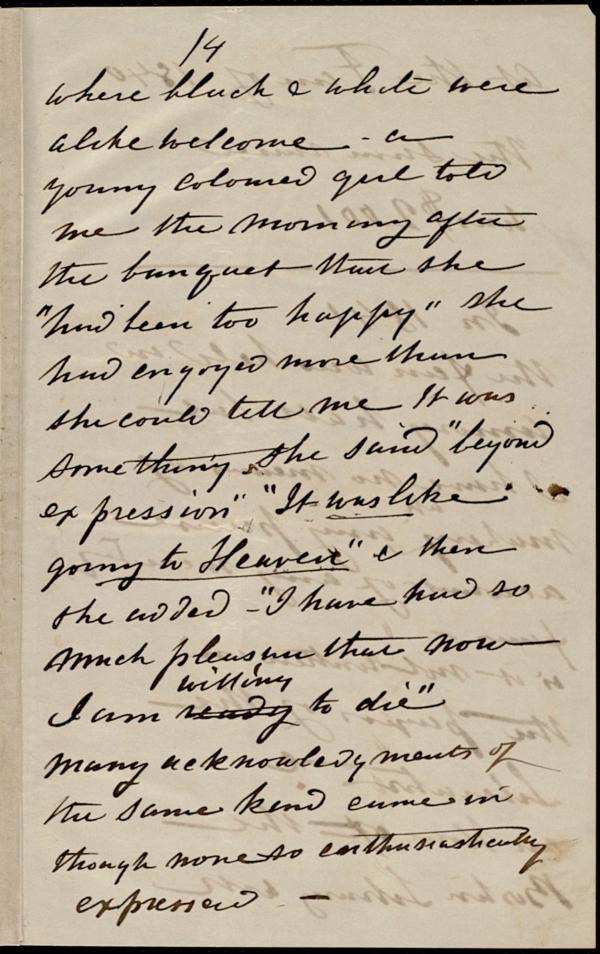 14
where black & white were
alike welcome - a
young coloured girl told
me the morning after
the banquet that she
"had been too happy" she
had enjoyed more than
she could tell me It was
something, she said "beyond
expression" "It was like
going to Heaven" & then
she added - "I have had so
much pleasure that now
willing
I am ready to die"
many acknowledgments of
the same kind came in
though none so enthusiastically
expressed -